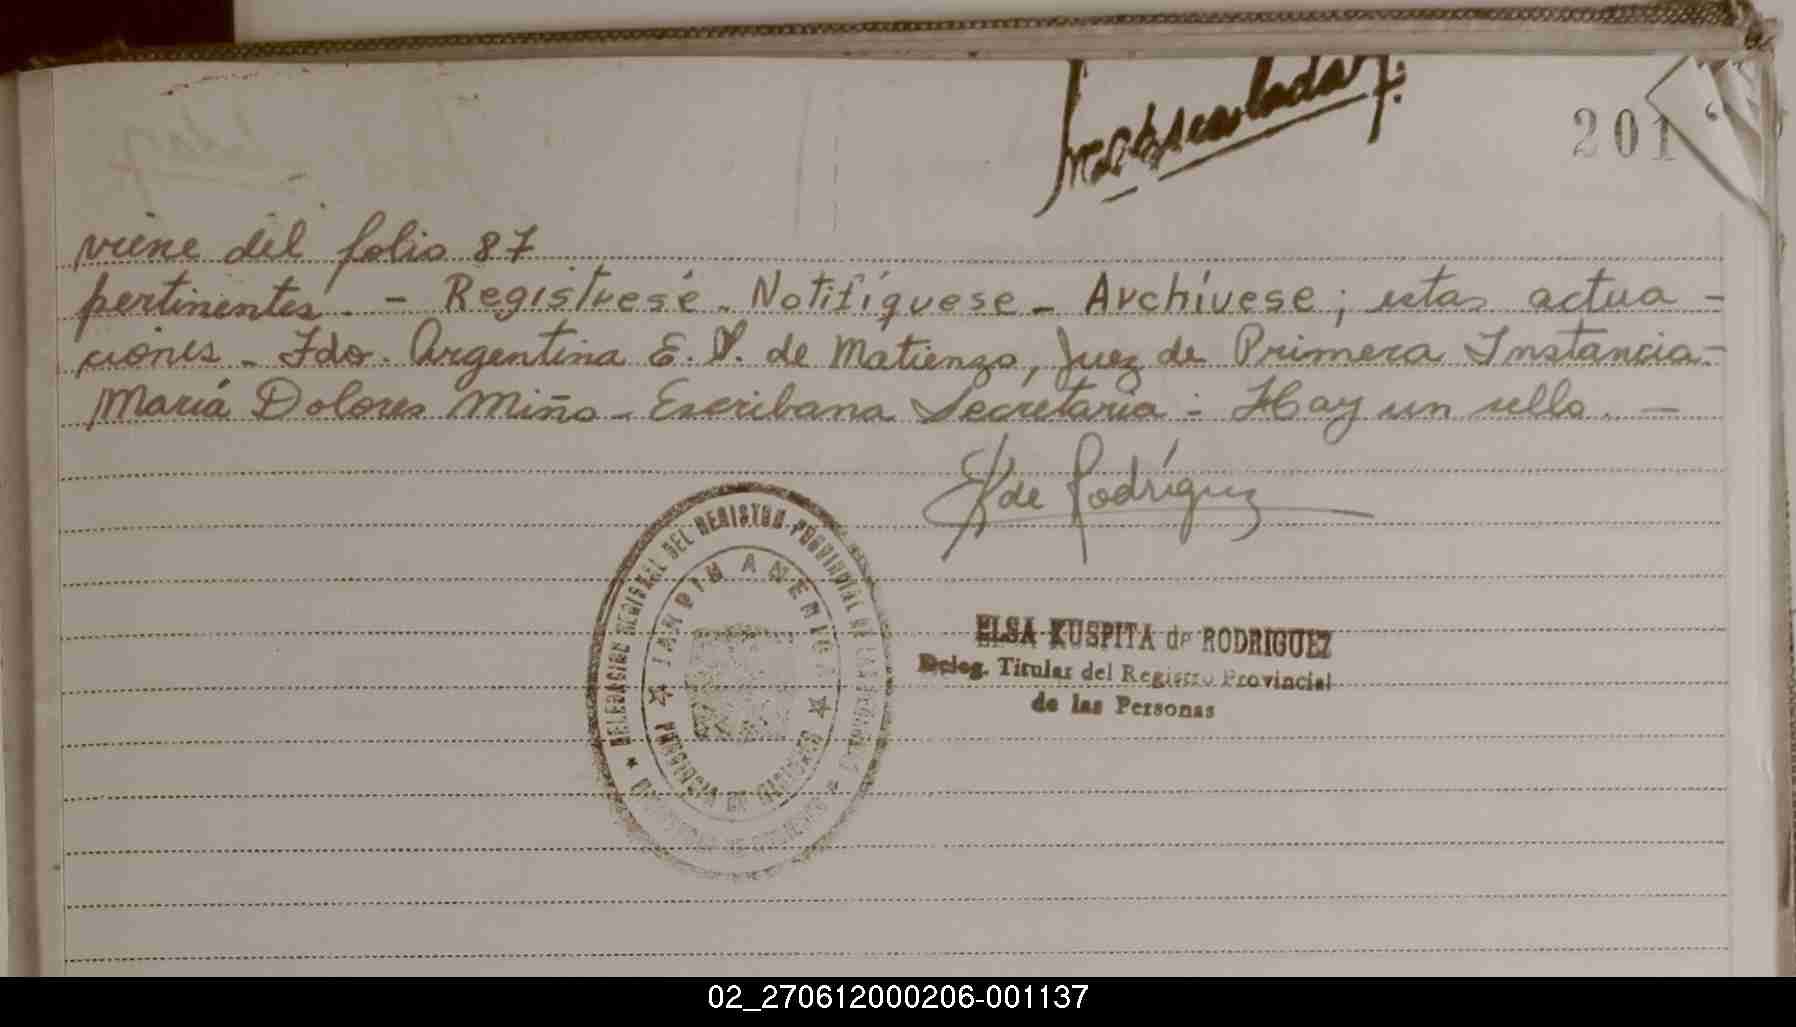 201
viene del folio 87
pertinentes. - Registrese - Notifíquese - Archívese; estas actua -
ciones - Fdo. Argentina E. V. de Matienzo, Juez de Primera Instancia -
María Dolores Miño - Escribana Secretaria - Hay un sello. -
EK de Rodríguez
DELEGACION REGIONAL DEL REGISTRO PROVINCIAL DE LAS PERSONAS
JARDIN AMERICA
PROVINCIA DE MISIONES
ELSA KUSPITA de RODRIGUEZ
Deleg. Titular del Registro Provincial
de las Personas
02_270612000206-001137